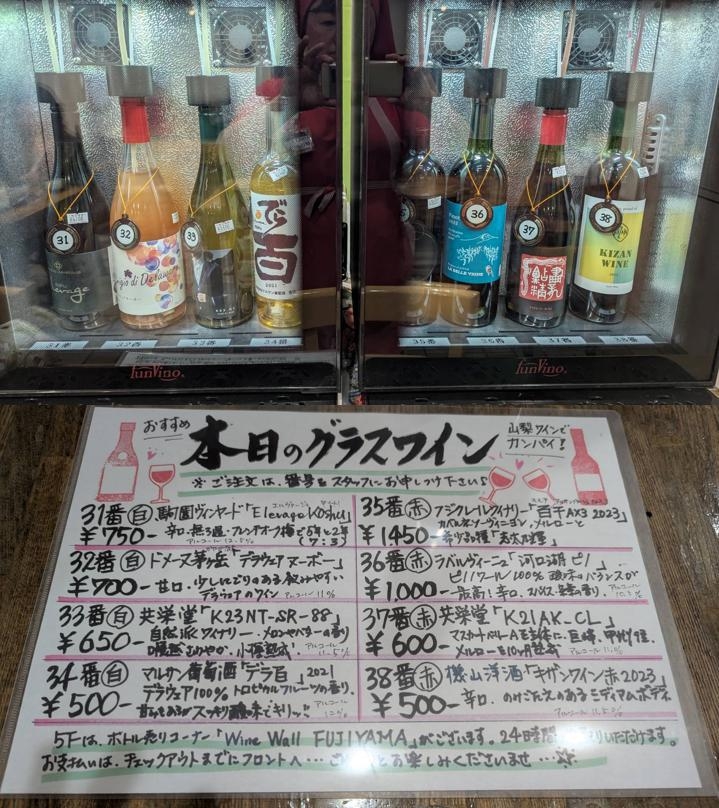 31
32
33
36
37
38
evage
gio di Delaw
でら
百
2021
Pinot
LA BELLE VIGNE
KIZAN
WINE
31番
32番
33番
34番
35番
36番
37番
38番
funVino.
funVino.
おすすめ
本日のグラスワイン
山梨ワインで
カンパイ!
※ご注文は、番号をスタッフにお申しつけ下さい
31番 白 駒園ヴィンヤード「Elevage Koshu」
¥750-
アルコール 12.5%
32番 白 ドメーヌ茅ヶ岳 「デラウェア ヌーボー」
¥700- 甘口、少しにごりのある飲みやすい
デラウェアのワイン アルコール11%
33番 白 共栄堂「K23NT-SR-88」
¥650- 自然派ワイナリー・メロンやバターの香り
アルコール 11.5%
34番 白 マルサン葡萄酒「デラ百」2021
¥500- デラウェア100% トロピカルフルーツの香り、
甘みもあるがスッキリ酸味でキリッ!! アルコール 12%
35番 赤 フジクレールワイナリー「百千AX3 2023」
¥1450- カバルネソーヴィニヨン、メルローと
36番 赤 ラベルヴィーニュ「河口湖ピノ」
¥1,000- ピノノワール100% 酸味のバランスが
アルコール 10.5%
37番 赤 共栄堂「K21AK_CL」
¥600- マスカットベリーAを主体に、巨峰、甲州種、
メルローを10ヶ月熟成 アルコール
38番 赤 機山洋酒「キザンワイン赤2023」
¥500- 辛口、のみごたえのあるミディアムボディ
アルコール 11.5%
5Fは、ボトル売りコーナー「Wine Wall FUJIYAMA」がございます。24時間 りいただけます。
お支払いは、チェックアウトまでにフロントへ… とお楽しみくださいませ…